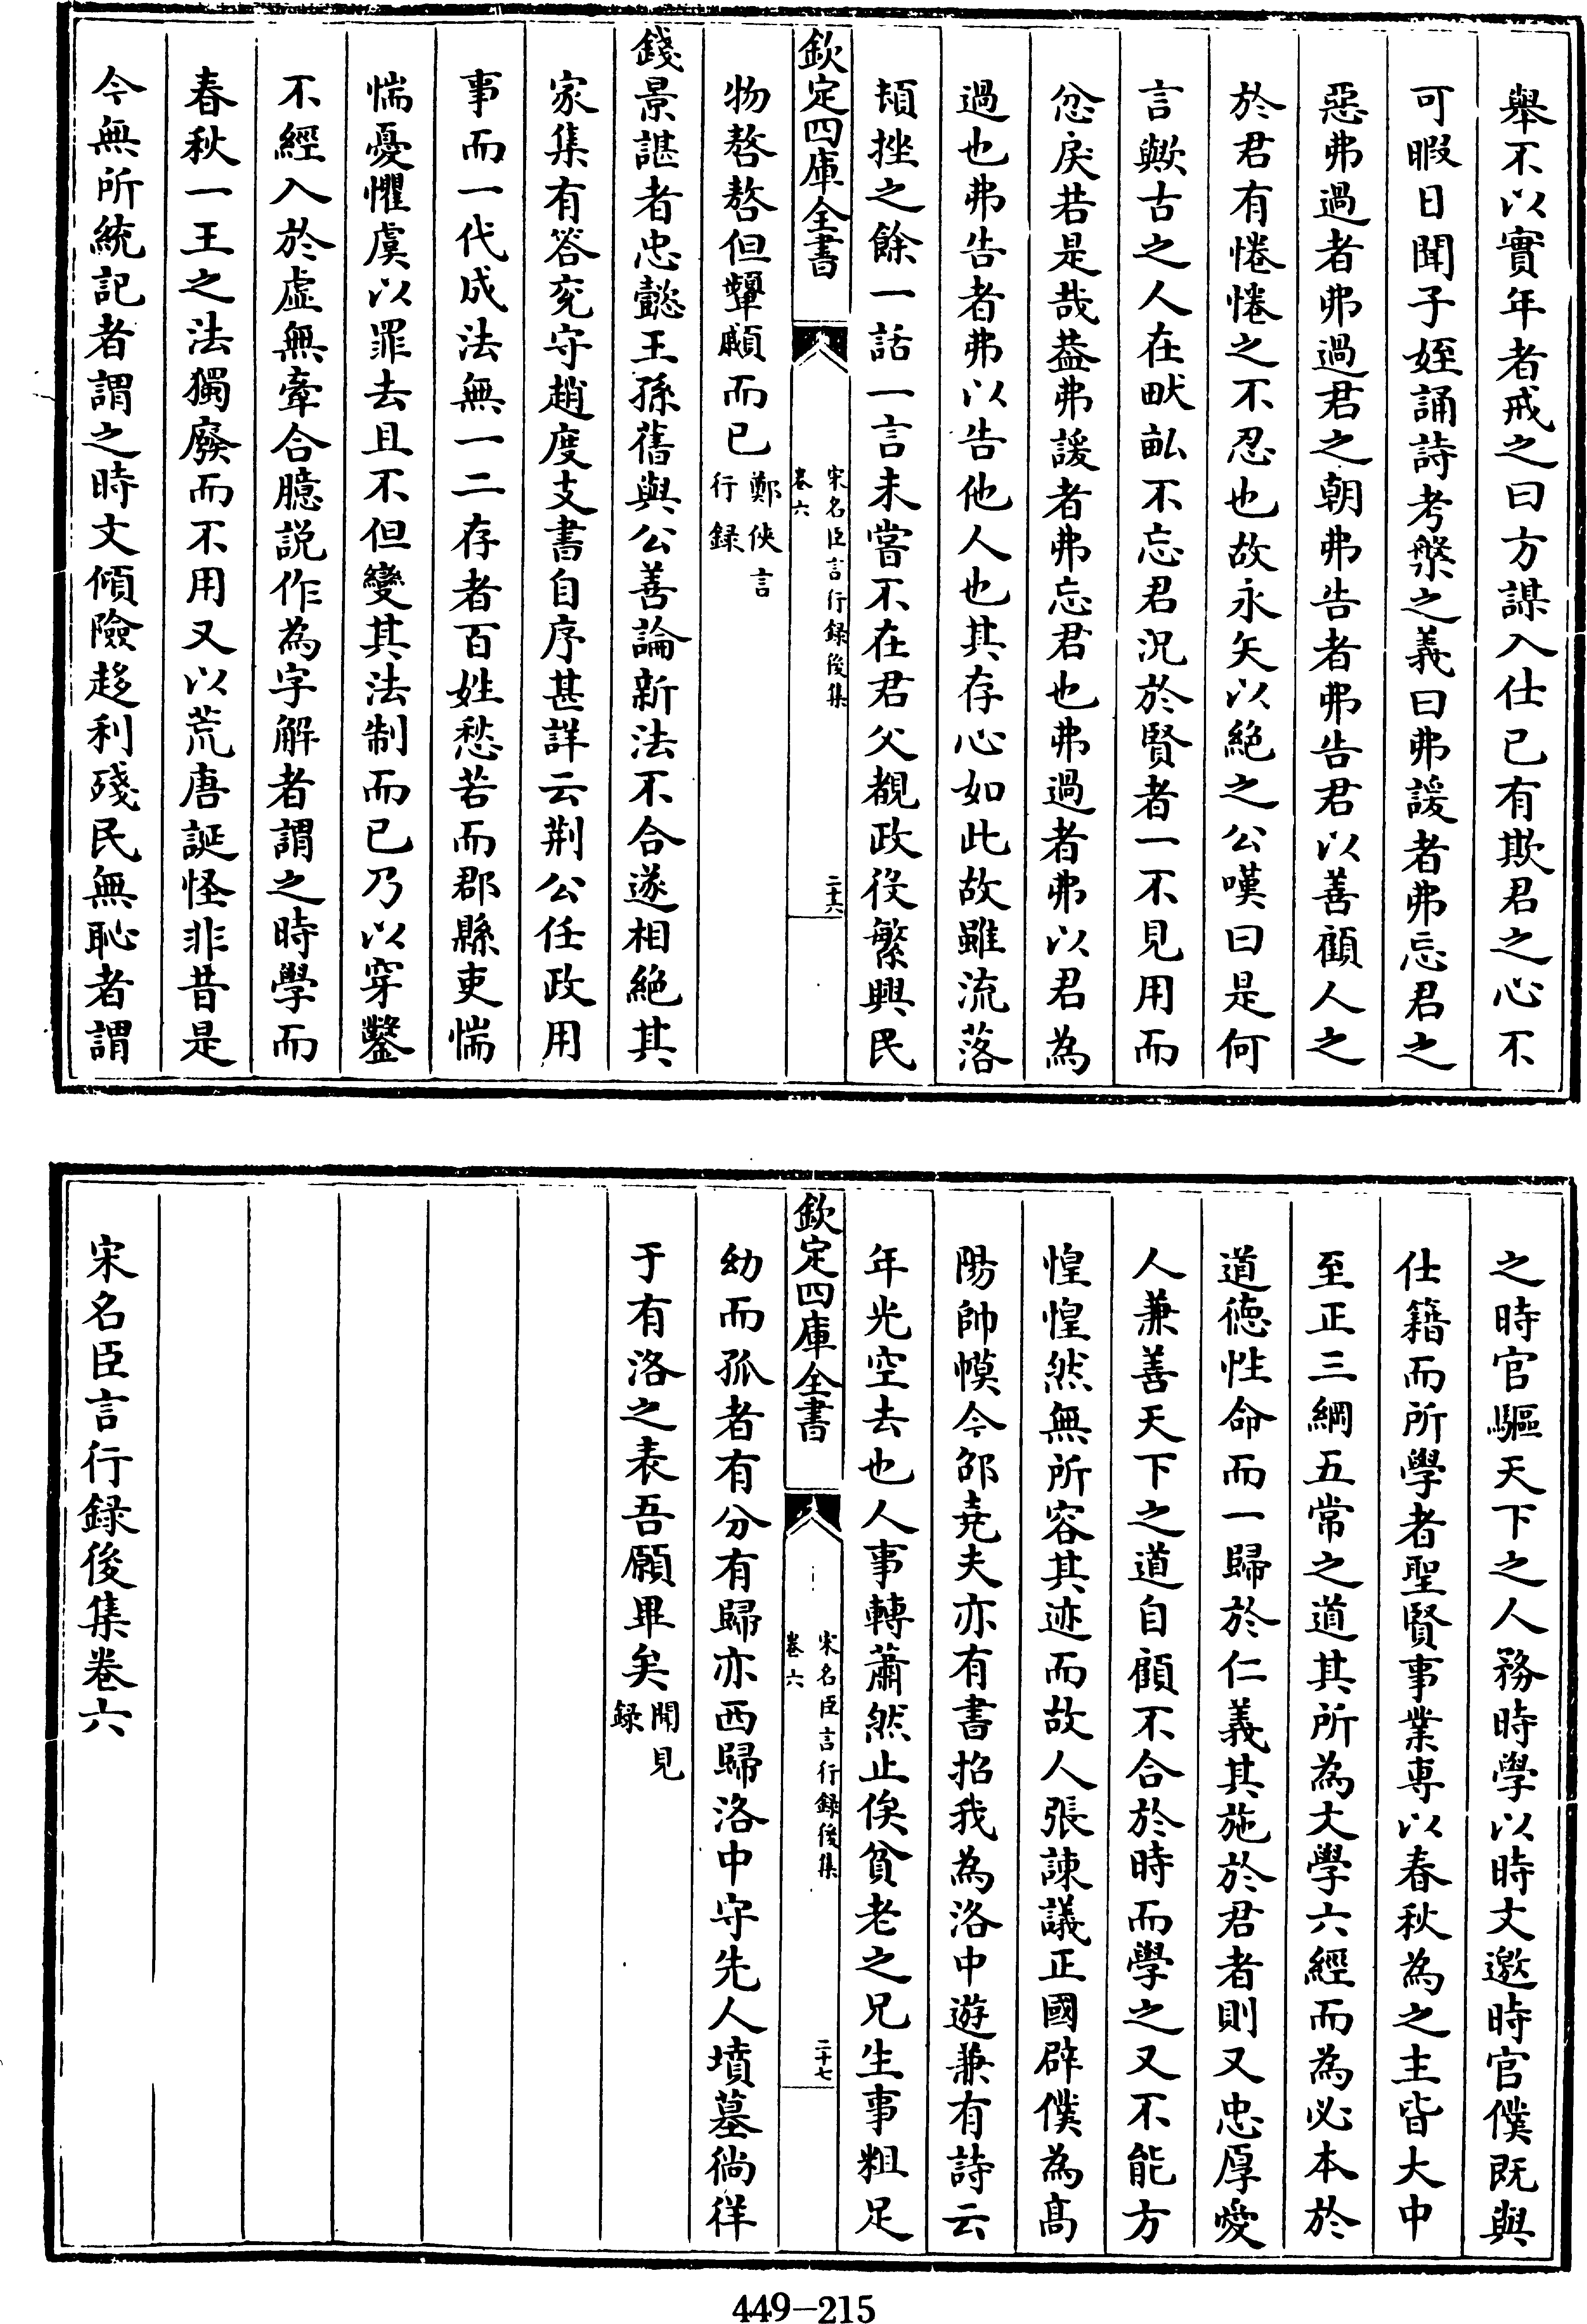 舉不以實年者戒之曰方謀入仕已有欺君之心不
可暇日聞子姪誦詩考槃之義曰弗諼者弗忘君之
惡弗過者弗過君之朝弗告者弗告君以善顧人之
於君有惓惓之不忍也故永矢以絶之公嘆曰是何
言歟古之人在畎畝不忘君況於賢者一不見用而
忿戾若是哉葢弗諼者弗忘君也弗過者弗以君為
過也弗告者弗以告他人也其存心如此故雖流落
頓挫之餘一話一言未嘗不在君父覩政役繁興民
欽定四庫全書
宋名臣言行録後集
卷六
二十六
物嗸嗸但顰顣而已鄭俠言
行録
錢景諶者忠懿王孫舊與公善論新法不合遂相絶其
家集有答兖守趙度支書自序甚詳云荆公任政用
事而一代成法無一二存者百姓愁苦而郡縣吏惴
惴憂懼虞以罪去且不但變其法制而已乃以穿鑿
不經入於虛無牽合臆説作為字解者謂之時學而
春秋一王之法獨廢而不用又以荒唐誕怪非昔是
今無所統記者謂之時文傾險趍利殘民無恥者謂
之時官驅天下之人務時學以時文邀時官僕既與
仕籍而所學者聖賢事業專以春秋為之主皆大中
至正三綱五常之道其所為大學六經而為必本於
道徳性命而一歸於仁義其施於君者則又忠厚愛
人兼善天下之道自顧不合於時而學之又不能方
惶惶然無所容其迹而故人張諫議正國辟僕為髙
陽帥幙今邵堯夫亦有書招我為洛中遊兼有詩云
年光空去也人事轉蕭然止俟貧老之兄生事粗足
欽定四庫全書
宋名臣言行録後集
卷六
二十七
幼而孤者有分有歸亦西歸洛中守先人墳墓徜徉
于有洛之表吾願畢矣聞見
録
宋名臣言行録後集卷六
449-215